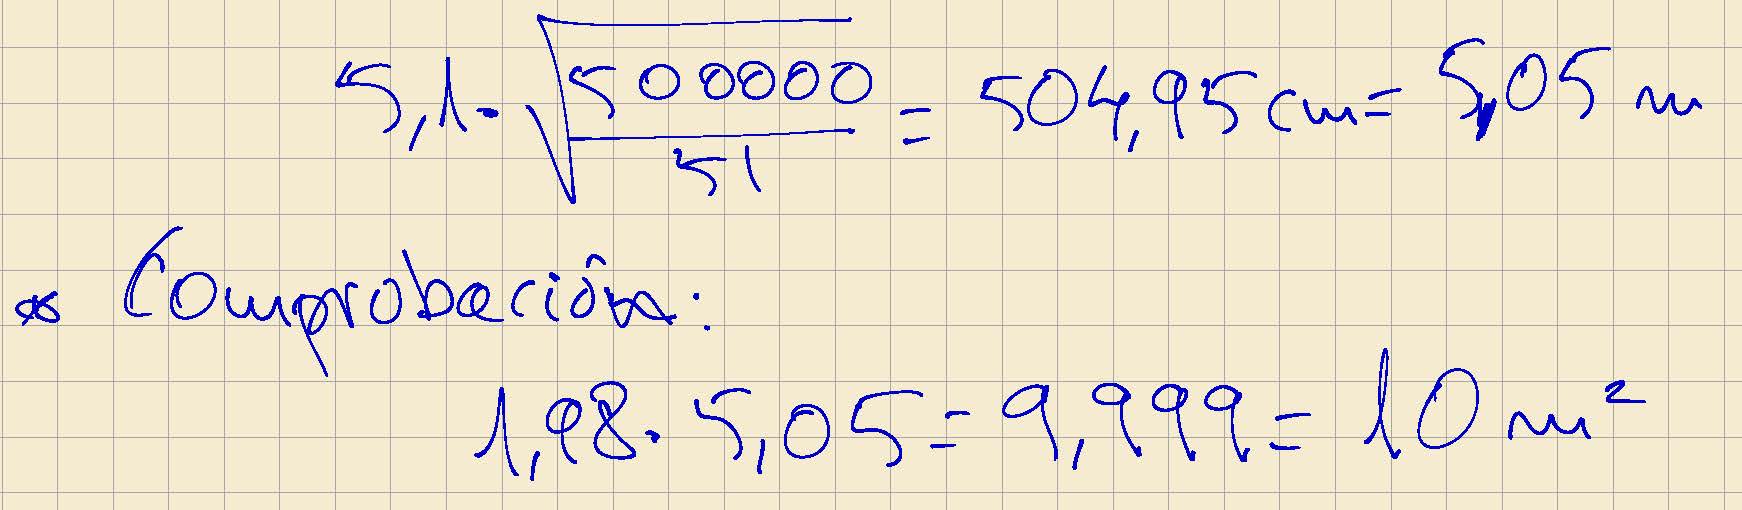 5,1·√(500000/51) = 504,95 cm = 5,05 m
* Comprobación:
1,98·5,05 = 9,999 = 10 m²